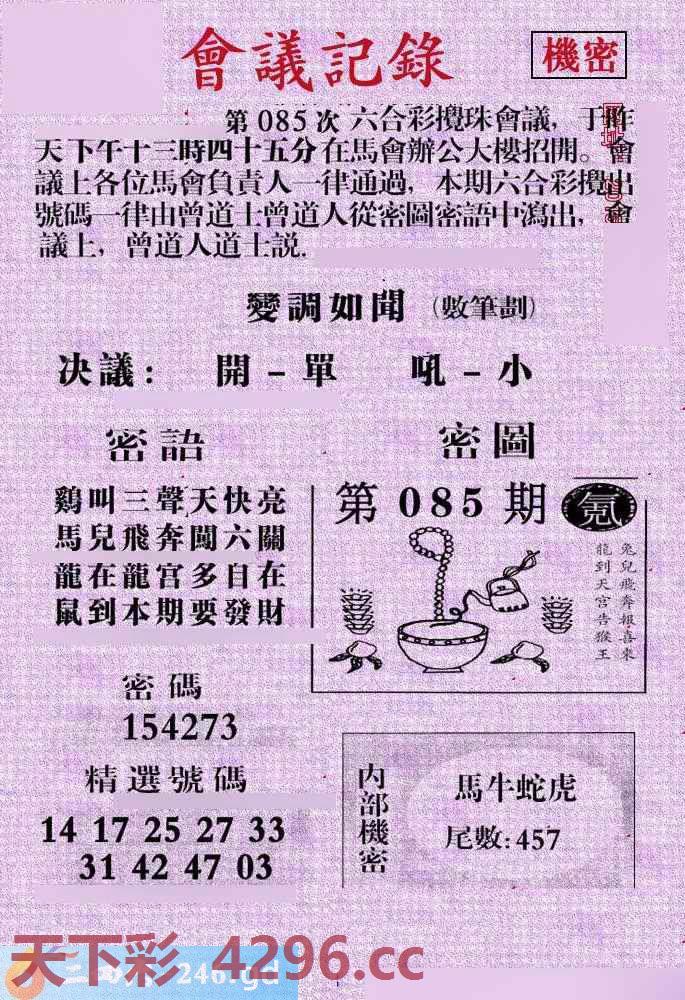 會議記錄
機密
第 085 次 六合彩攪珠會議，于昨
天下午十三時四十五分在馬會辦公大樓招開。會
議上各位馬會負責人一律通過，本期六合彩攪出
號碼一律由曾道士曾道人從密圖密語中瀉出，會
議上，曾道人道士説.
變調如聞（數筆劃）
决議：　開－單　吼－小
密語
鷄叫三聲天快亮
馬兒飛奔闖六關
龍在龍宫多自在
鼠到本期要發財
密圖
第 085 期
兔兒飛奔報喜來
龍到天宫告猴王
密碼
154273
精選號碼
14 17 25 27 33
31 42 47 03
内部機密
馬牛蛇虎
尾數:457
天下彩 4296.cc
246.gd